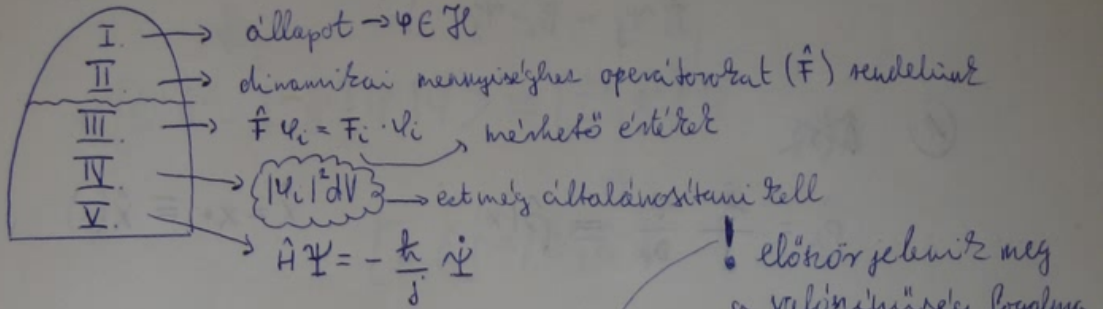 I. → állapot → φ ∈ ℋ
II. → dinamikai mennyiséghez operátorokat (F̂) rendelünk
III. → F̂ φᵢ = Fᵢ · φᵢ → mérhető értékek
IV. → |φᵢ|² dV → ezt még általánosítani kell
V. → Ĥ Ψ = - ℏ/j Ψ̇
! először jelenik meg
a valószínűség fogalma